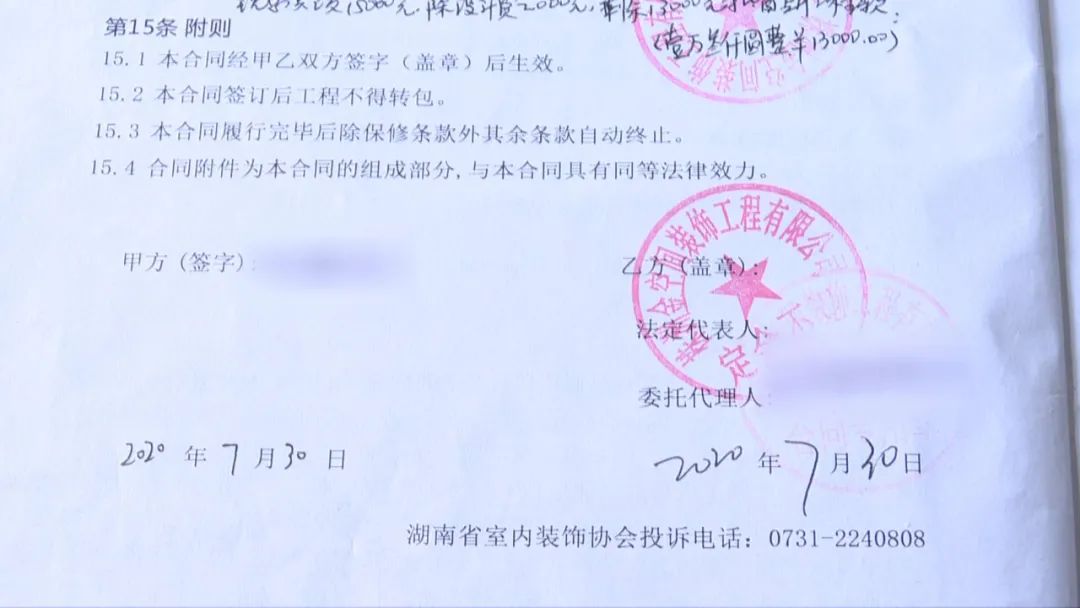 15000元.除设计费2000元,剩除13000元
第15条 附则
(壹万叁仟圆整￥13000.00)
15.1 本合同经甲乙双方签字（盖章）后生效。
15.2 本合同签订后工程不得转包。
15.3 本合同履行完毕后除保修条款外其余条款自动终止。
15.4 合同附件为本合同的组成部分,与本合同具有同等法律效力。
金空间装饰工程有限公司
甲方 (签字):
乙方 (盖章):
法定代表人:
委托代理人
2020 年 7 月 30 日
2020 年 7 月 30 日
湖南省室内装饰协会投诉电话：0731-2240808